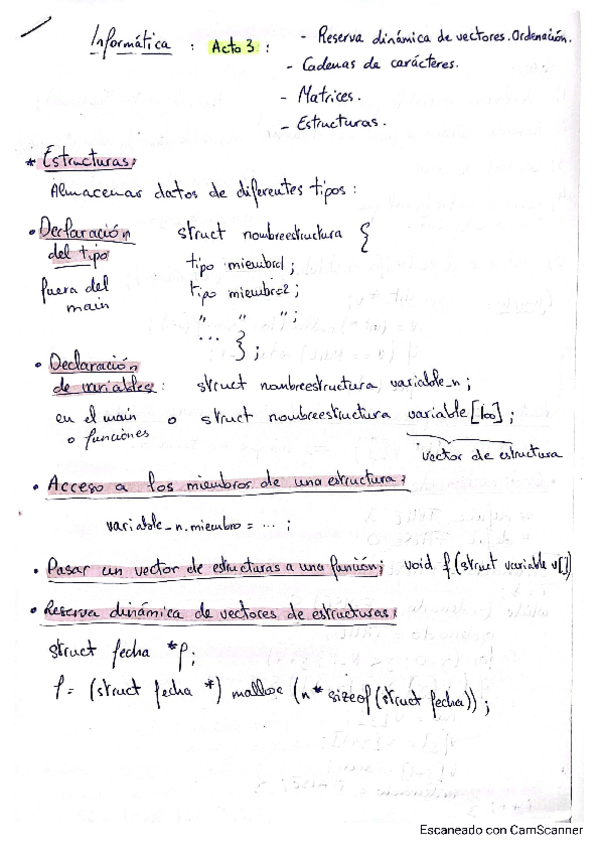 Informática : Acto 3 : - Reserva dinámica de vectores. Ordenación.
- Cadenas de carácteres.
- Matrices.
- Estructuras.
* Estructuras:
Almacenar datos de diferentes tipos :
• Declaración del tipo
fuera del main
struct nombreestructura {
tipo miembro1 ;
tipo miembro2 ;
" " " ;
... } ;
• Declaración de variables : struct nombreestructura variable_n ;
en el main o funciones
o struct nombreestructura variable[100] ;
vector de estructura
• Acceso a los miembros de una estructura :
variable_n.miembro = ... ;
• Pasar un vector de estructuras a una función ; void f (struct variable v[])
• Reserva dinámica de vectores de estructuras :
struct fecha *p ;
p = (struct fecha *) malloc (n * sizeof (struct fecha)) ;
Escaneado con CamScanner